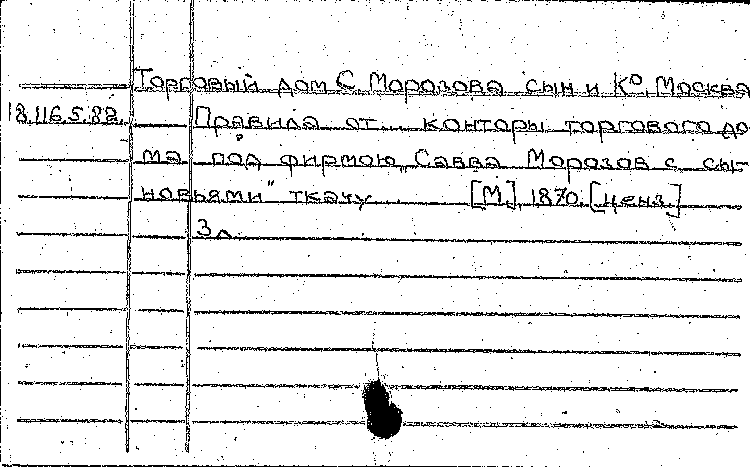 Торговый дом С. Морозова сын и Ко, Москва
18.116.5.82. Правила от... конторы торгового до-
ма под фирмою „Савва Морозов с сы-
новьями" ткачу. [М], 1870. [ценз.]
3 л.